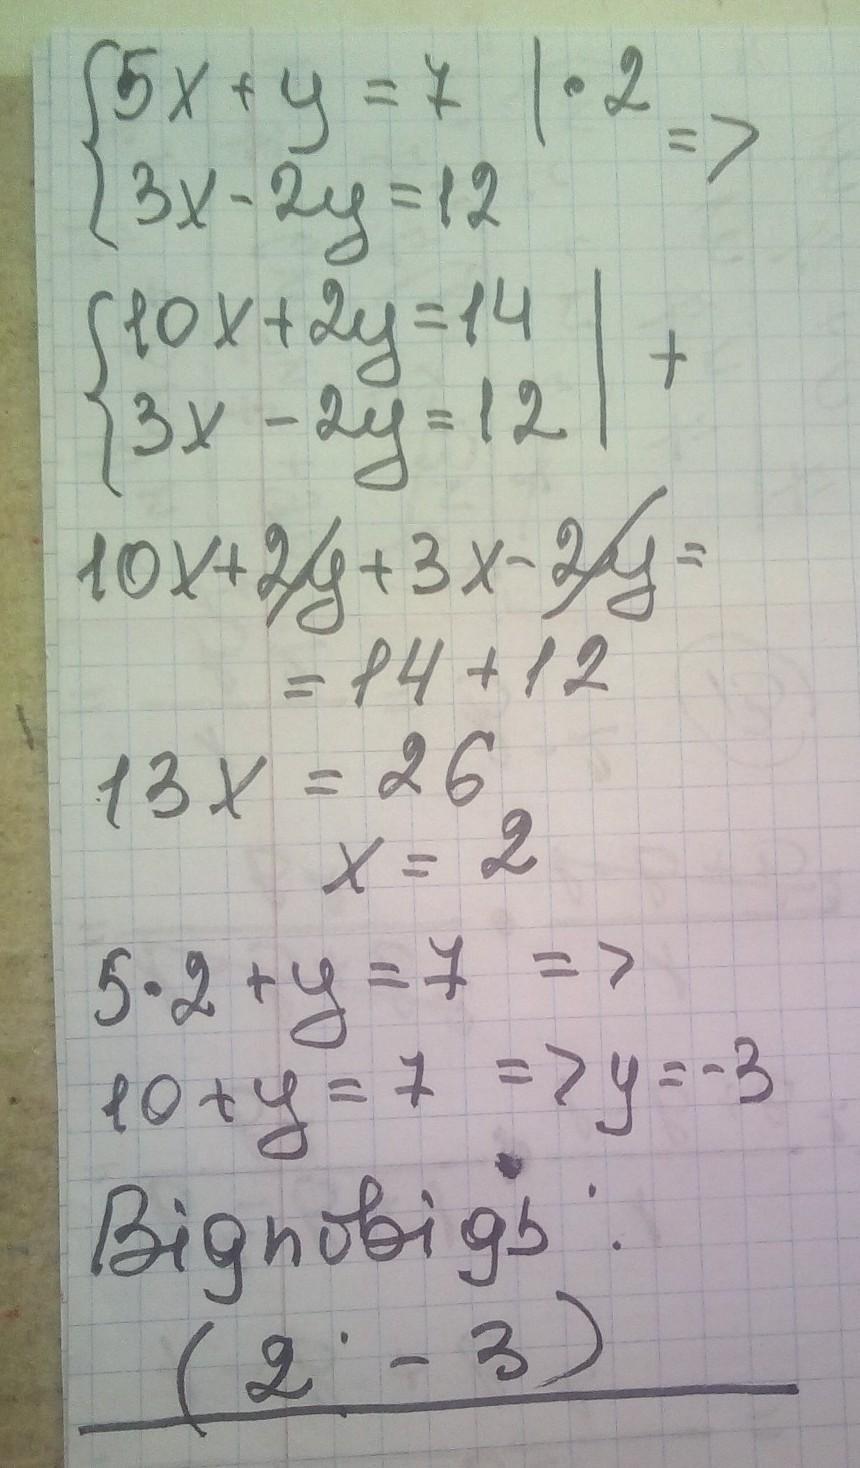 {5x + y = 7 | · 2
{3x - 2y = 12 =>
{10x + 2y = 14 | +
{3x - 2y = 12
10x + 2y + 3x - 2y =
= 14 + 12
13x = 26
x = 2
5·2 + y = 7 =>
10 + y = 7 => y = -3
Відповідь:
(2; -3)